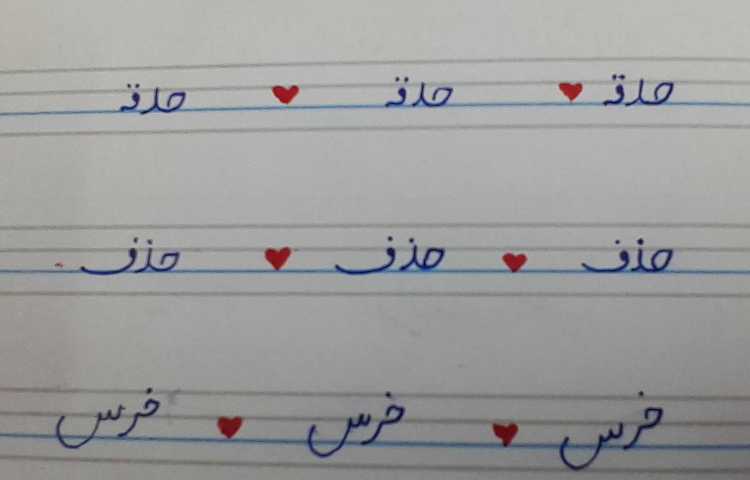 حدقه ♥ حدقه ♥ حدقه
حذف ♥ حذف ♥ حذف
خرس ♥ خرس ♥ خرس